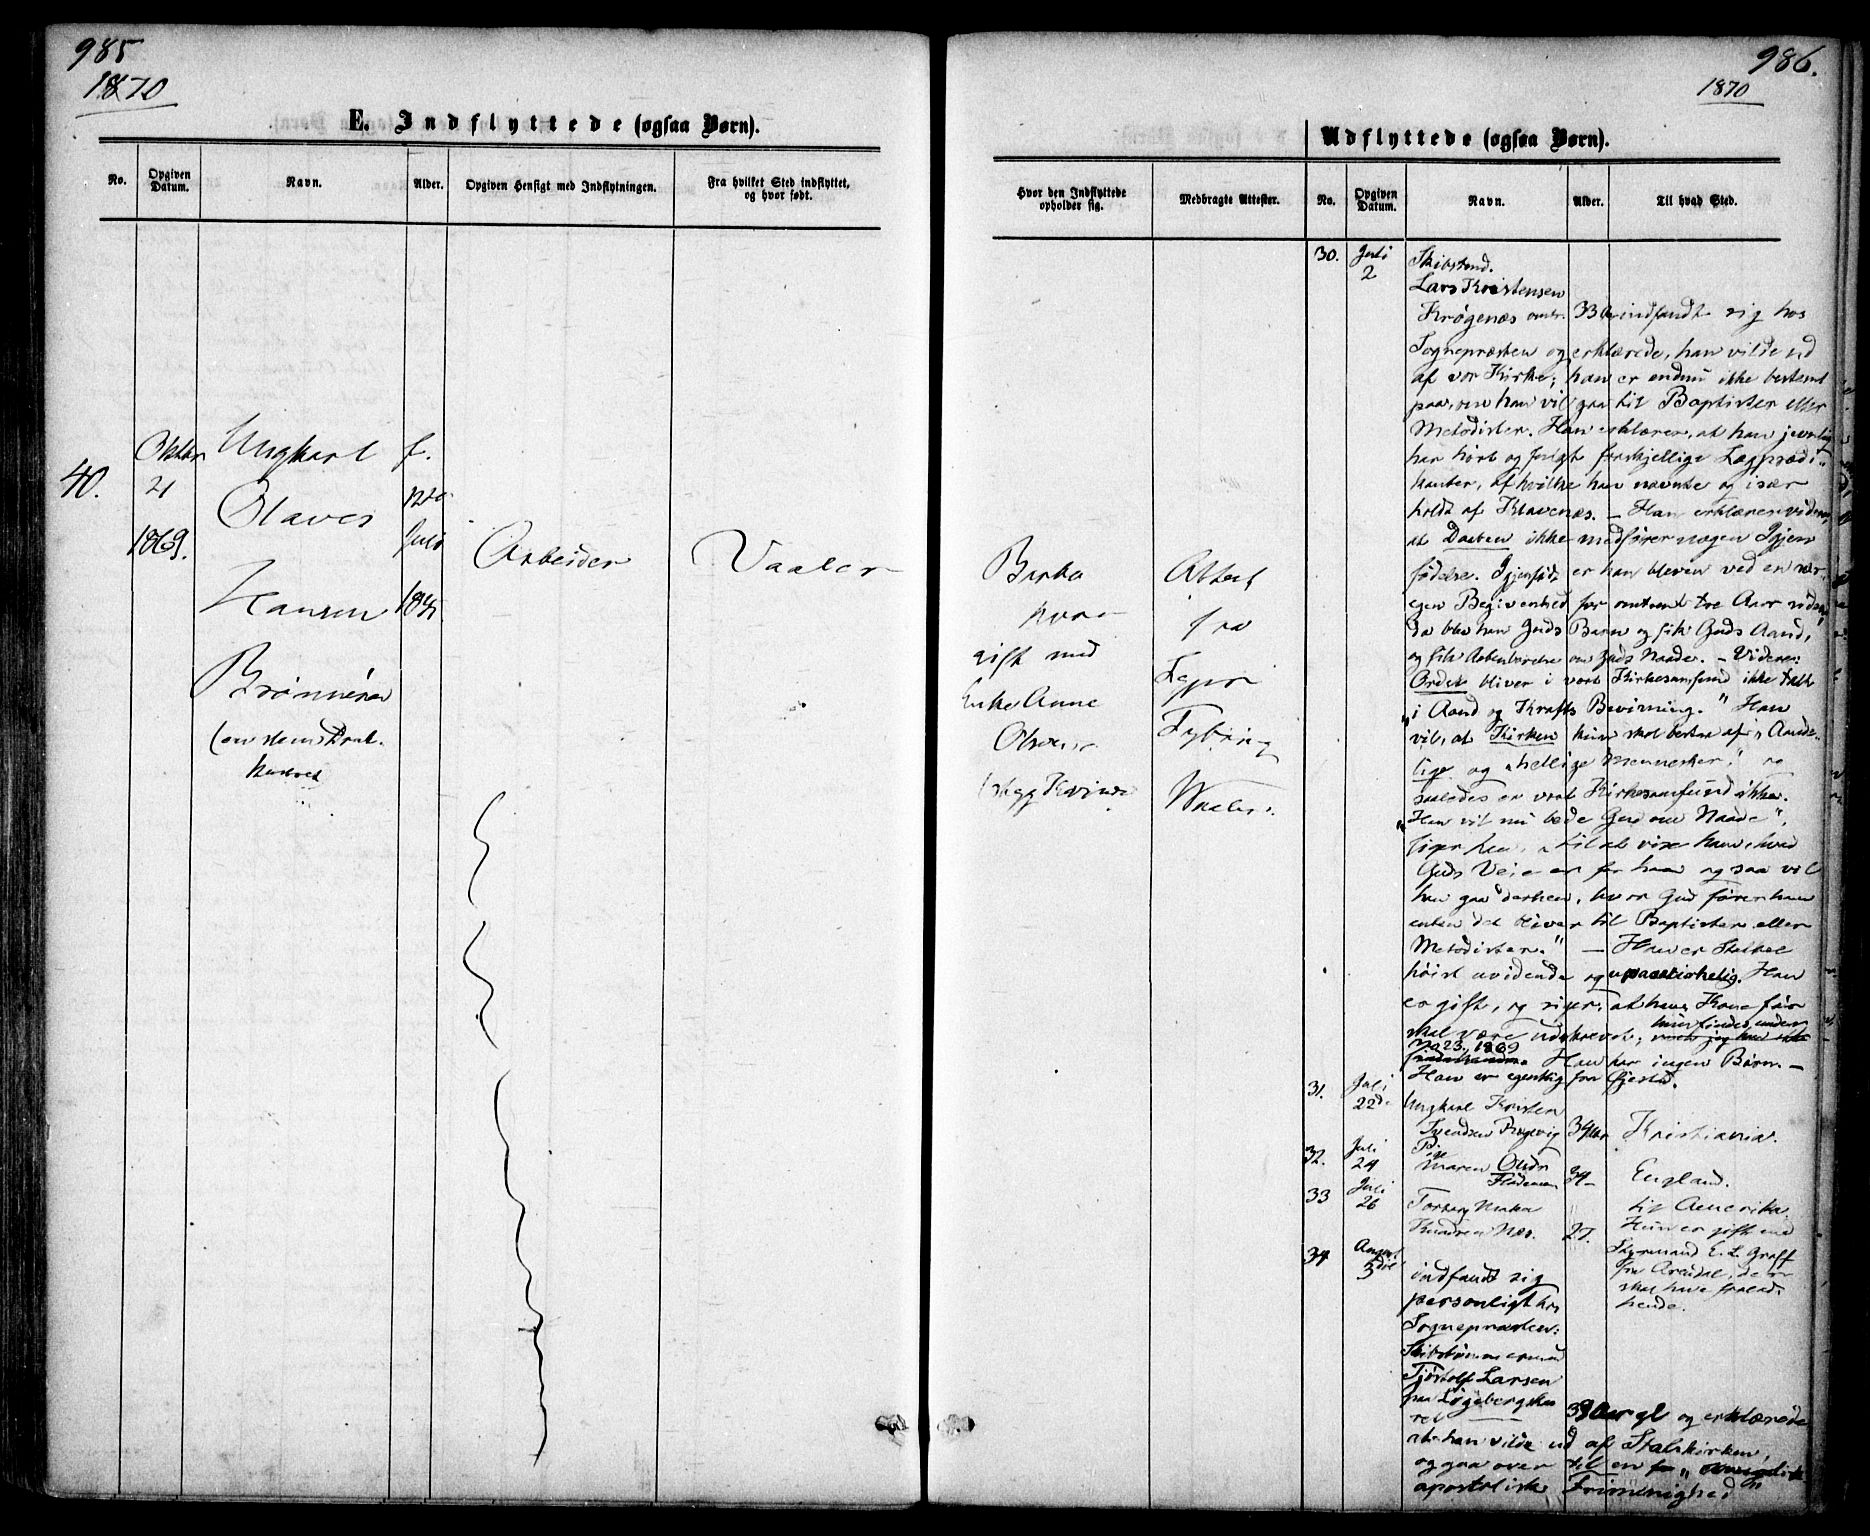 985
1870
E. Indflyttede (ogsaa Børn).
No.
Opgiven Datum.
Navn.
Alder.
Opgiven Hensigt med Indflytningen.
Fra hvilket Sted indflyttet, og hvor født.
40.
Oktbr
21
1869.
Ungkarl
Olaves
Hansen
f.
Juli
Arbeider
Vaaler
986.
1870
Udflyttede (ogsaa Børn).
Hvor den Indflyttede opholder sig.
Medbragte Attester.
No.
Opgiven Datum.
Navn.
Alder.
Til hvad Sted.
gift med
Enke Anne
Olsen
Attest
fra
30.
Juli
2
Lars Kristensen
Krøgenæs omtr. 33 Aar indfandt sig hos
Sognepræsten og erklærede, han vilde ud
af vor Kirke; han er endnu ikke bestemt
paa, om han vil gaa til Baptister eller
Metodister. Han erklærer, at han jevnlig
har hørt og søgt forskjellige Lægprædi-
kanter, af hvilke han nævnte og især
holdt af Klavenæs. – Han erklærer videre,
at Daaben ikke medfører nogen Igjen
fødelse. Igjenfødt er han bleven ved en
egen Begivenhed for omtrent tre Aar siden,
da blev han Guds Barn og fik Guds Aand,
og fik Aabenbarelse om Guds Naade. – Videre:
Ordet bliver i vort Kirkesamfund ikke talt
"i Aand og Krafts Bevisning." Han
vil, at Kirken kun skal bestaa af "Aande-
lige og "hellige Mennesker;" og
saaledes er vort Kirkesamfund ikke.
"Han vil nu bede Gud om Naade",
siger han, "til at vise ham, hvad
Guds Veie er for ham og saa vil
han gaa derhen, hvor Gud fører ham
enten det bliver til Baptister eller
Metodister." – Han er
høist uvidende og upaavirkelig. Han
er gift, og siger, at hans Kone før
skal være udskrevet; hun findes under
No 23, 1869
Han har ingen Børn –
Han er egentlig fra Øjestad.
31.
Juli
22de
Ungkarl Kristen
Svendsen
Kristiania.
32.
Juli
24
Pige
Maren Olsdr
England.
33
Juli
26
Knudsen Næs.
27.
til Amerika.
Hun er gift med
Styrmand E. L. Graff
fra Arendal, der
skal have fraladt
hende.
34
August
3die
indfandt sig
personligt hos
Sognepræsten:
Skibstømmermand
Tjøstolf Larsen
39 Aar gl og erklærede
at han vilde ud af Statskirken,
og gaa over til en
apostolisk Frimenighed"